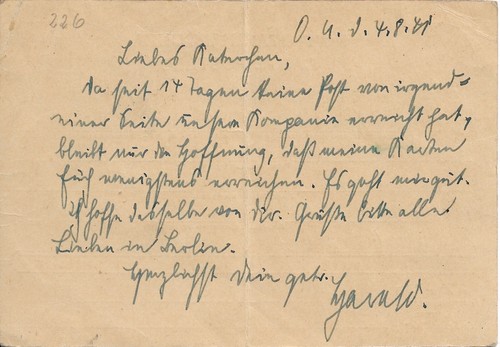 226
O. U. d. 4.8.41
Liebes Katerchen,
Da seit 14 Tagen keine Post von irgend=
einer Seite unsere Kompanie erreicht hat,
bleibt nur die Hoffnung, daß meine Karten
Euch wenigstens erreichen. Es geht mir gut.
Ich hoffe dasselbe von Dir. Grüße bitte alle
Lieben in Berlin.
Herzlichst Dein getr.
Harald.